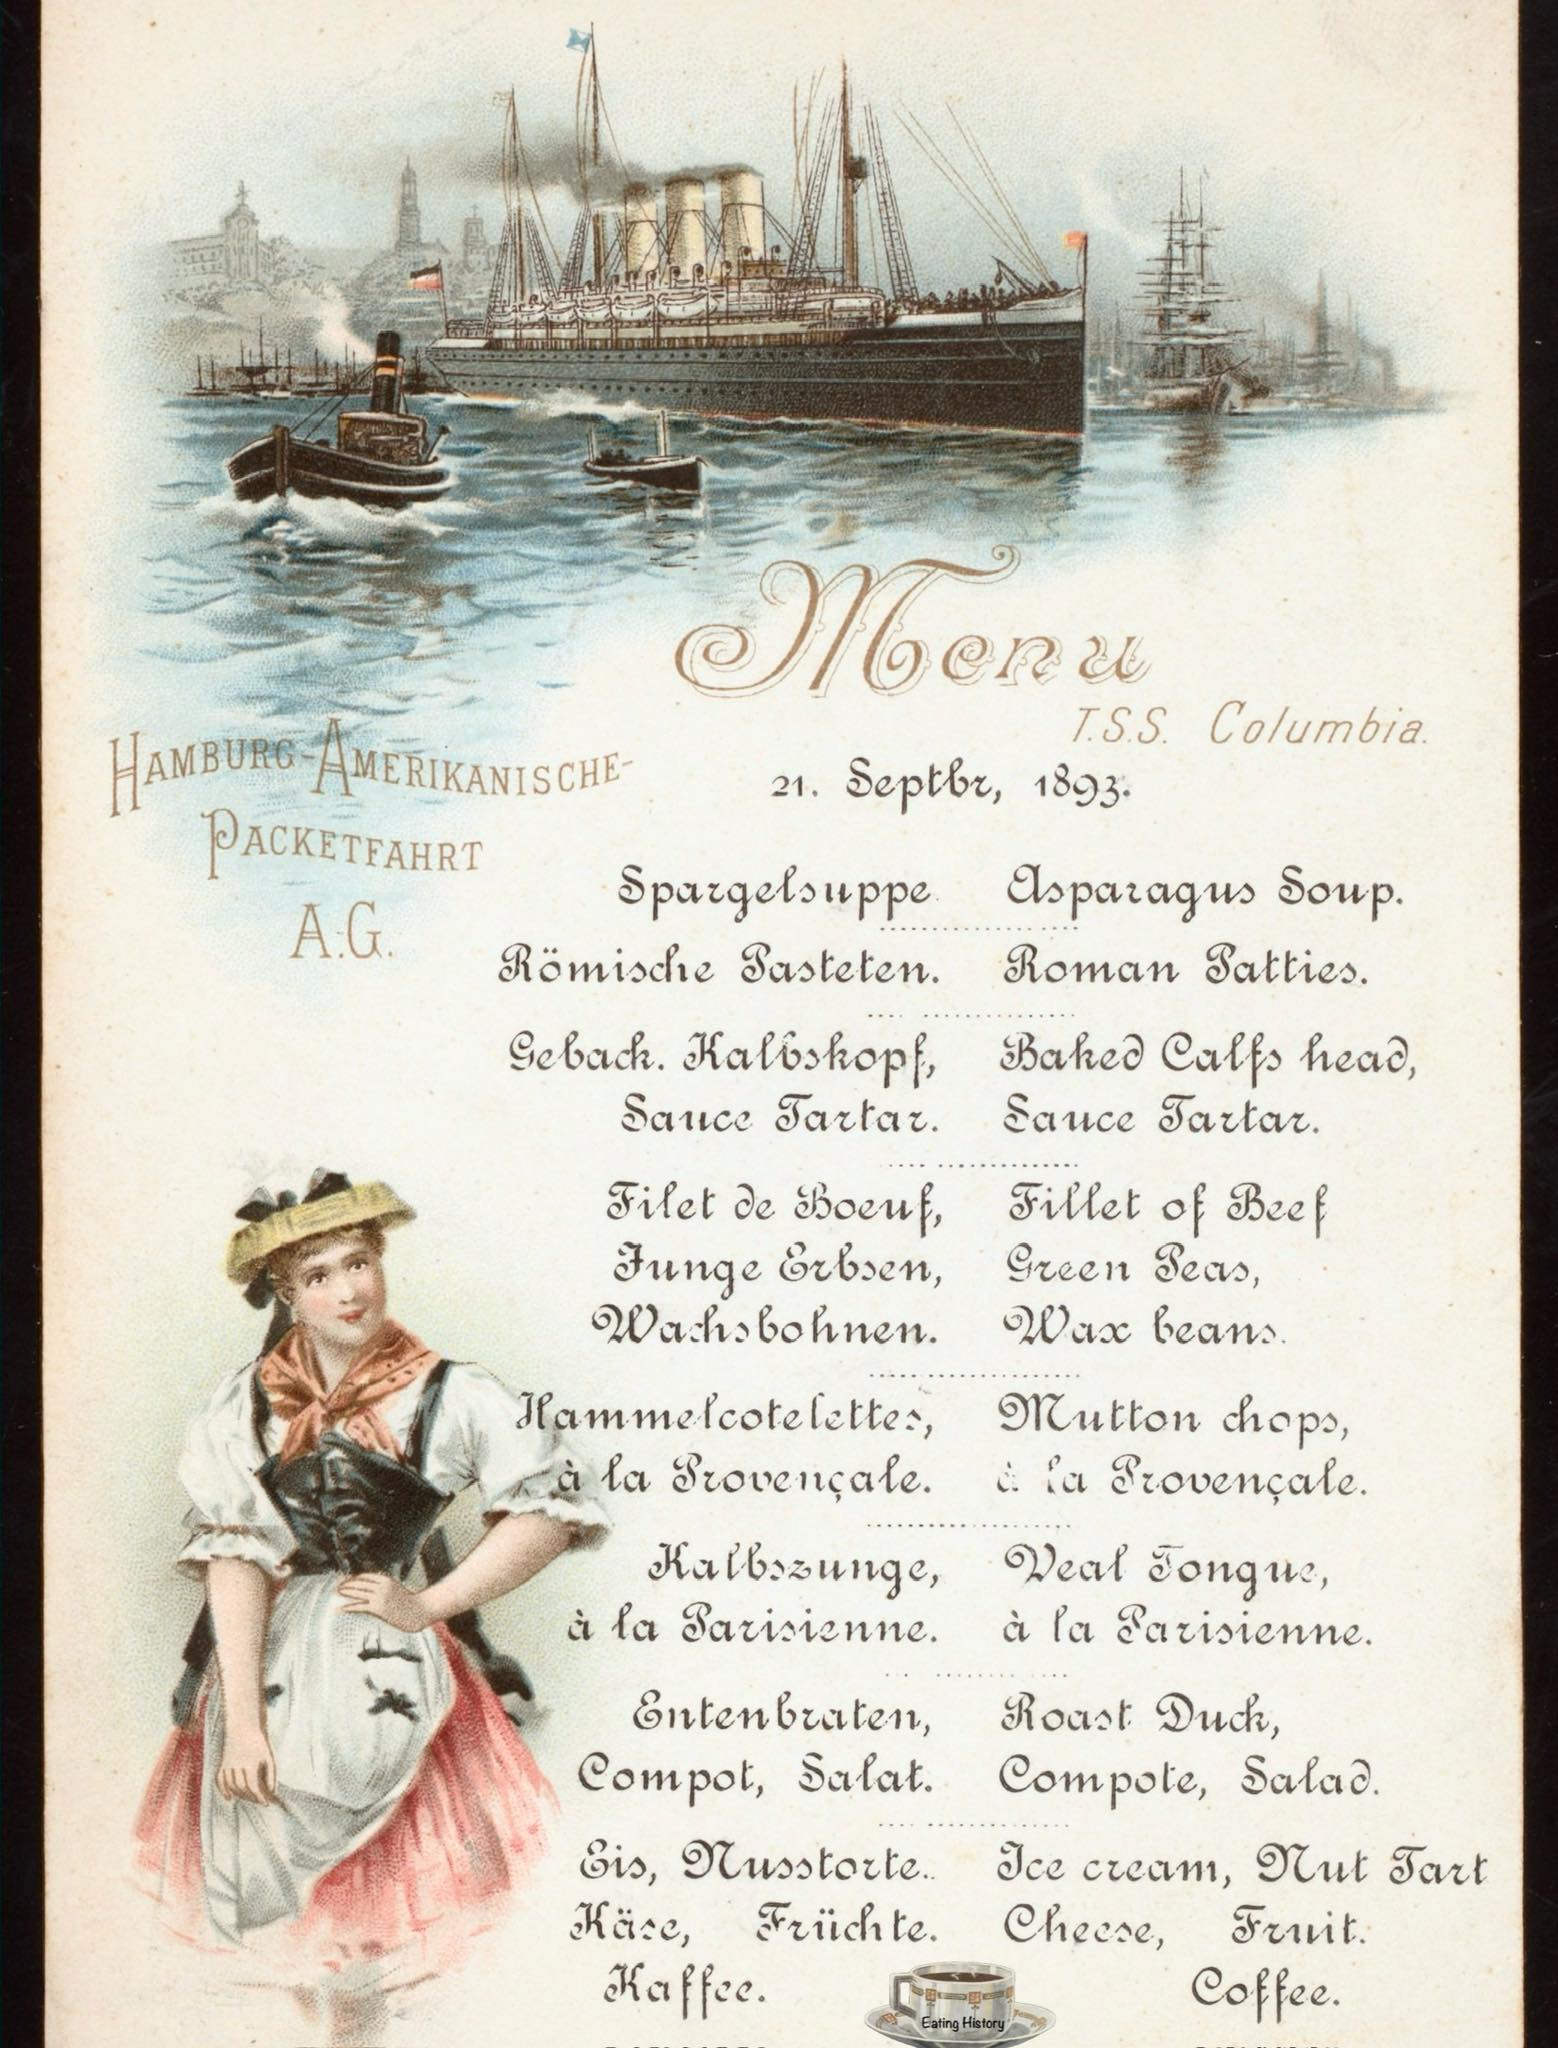 Menu
T.S.S. Columbia.
HAMBURG-AMERIKANISCHE-
PACKETFAHRT
A.G.
21. Septbr, 1893.
Spargelsuppe Asparagus Soup.
Römische Pasteten. Roman Patties.
Geback. Kalbskopf, Baked Calfs head,
Sauce Tartar. Sauce Tartar.
Filet de Boeuf, Fillet of Beef
Junge Erbsen, Green Peas,
Wachsbohnen. Wax beans.
Hammelcotelettes, Mutton chops,
à la Provençale. à la Provençale.
Kalbszunge, Veal Tongue,
à la Parisienne. à la Parisienne.
Entenbraten, Roast Duck,
Compot, Salat. Compote, Salad.
Eis, Nusstorte. Ice cream, Nut Tart
Käse, Früchte. Cheese, Fruit.
Kaffee. Coffee.
Eating History